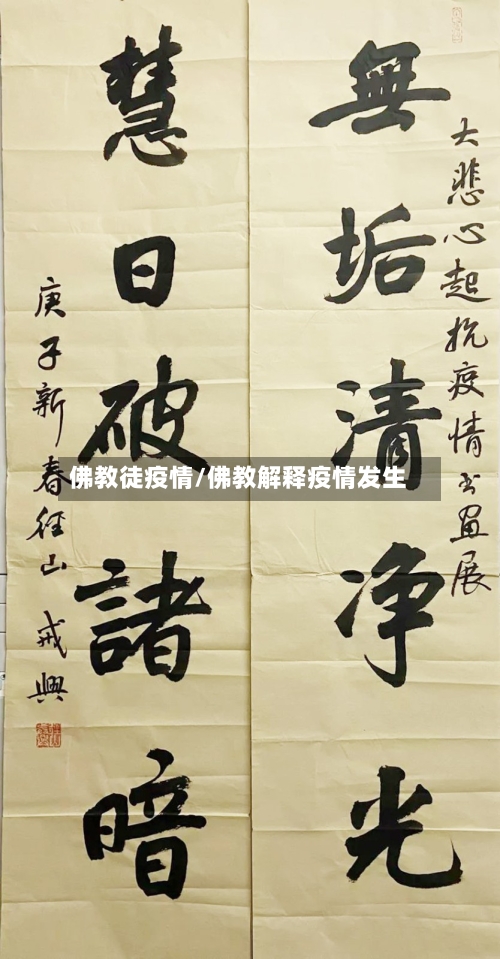 大悲心起抗疫情书画展
無垢清净光
慧日破諸暗
庚子新春径山戒興
佛教徒疫情/佛教解释疫情发生